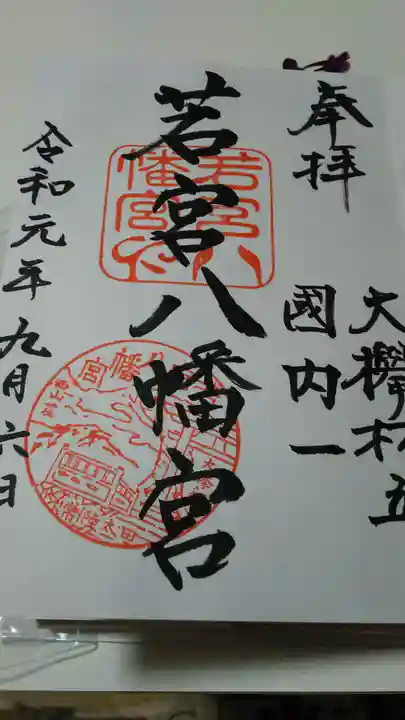 奉拝
大欅樹五
國内一
若宮八幡宮
令和元年九月六日
若宮八
幡宮印
八幡宮